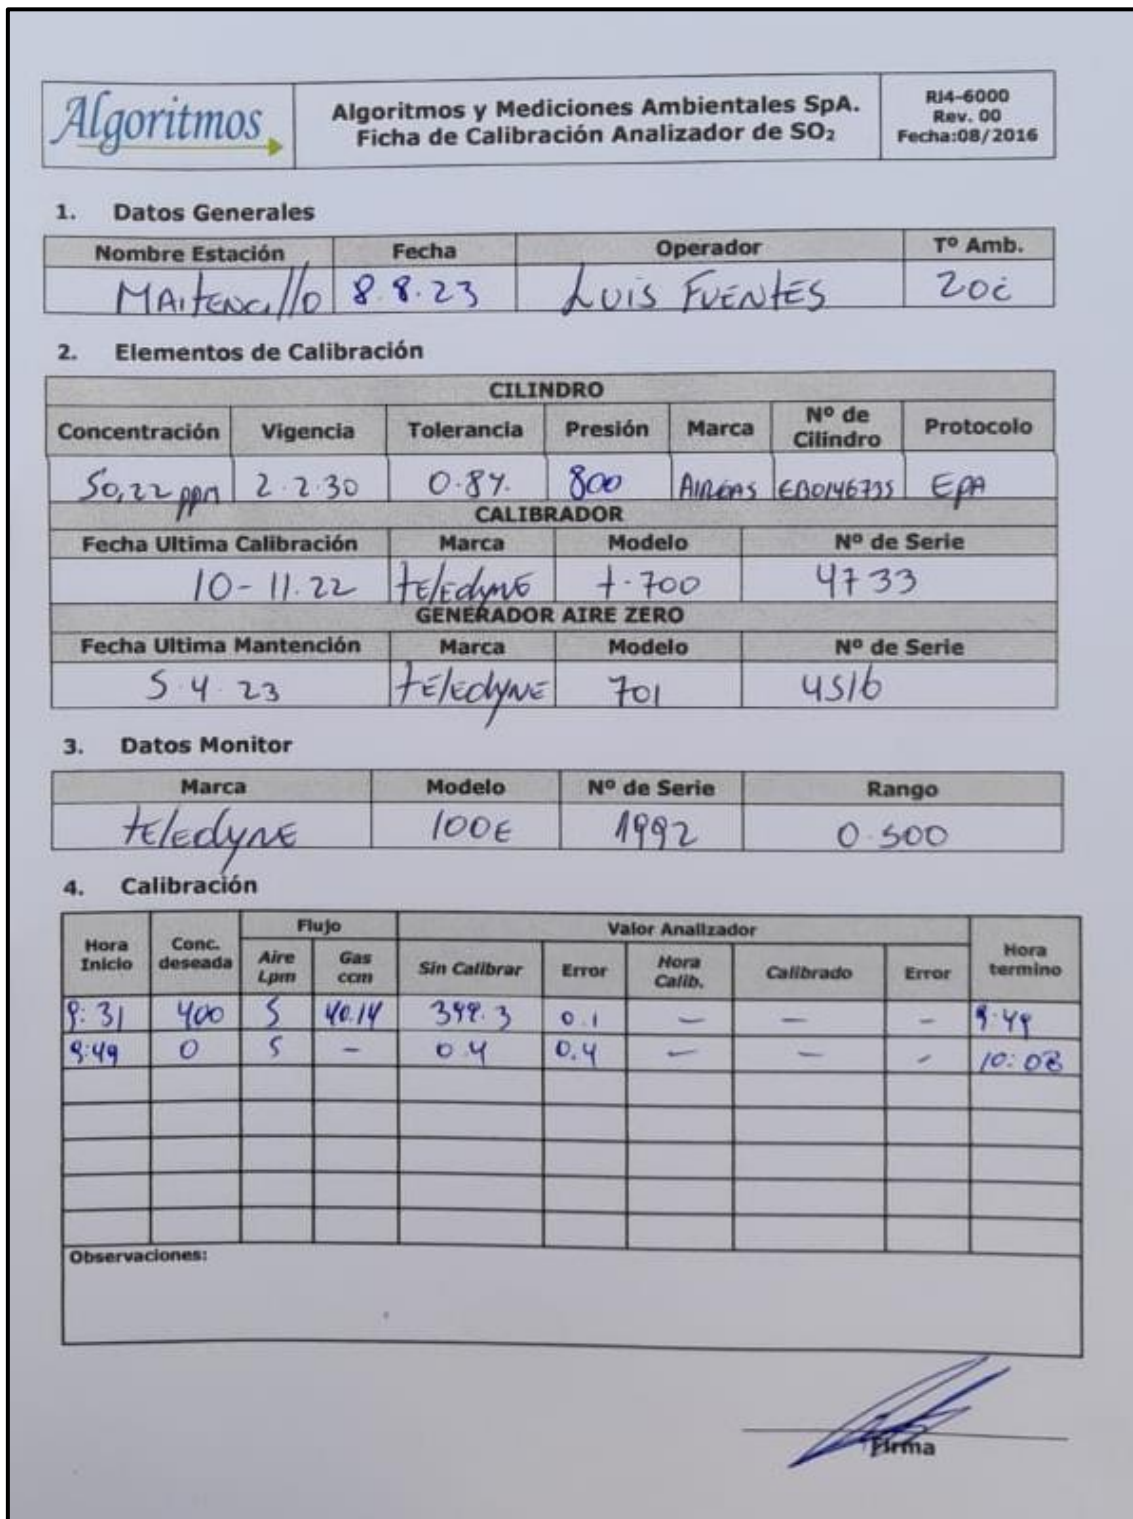 Algoritmos
Algoritmos y Mediciones Ambientales SpA.
Ficha de Calibración Analizador de SO₂
RJ4-6000
Rev. 00
Fecha:08/2016
1. Datos Generales
Nombre Estación Fecha Operador Tº Amb.
MAITENCIllO 8.8.23 LUIS FUENTES 20c
2. Elementos de Calibración
CILINDRO
Concentración Vigencia Tolerancia Presión Marca Nº de Cilindro Protocolo
50,22 ppm 2.2.30 0.8%. 800 AIRGAS EB0146735 EPA
CALIBRADOR
Fecha Ultima Calibración Marca Modelo Nº de Serie
10-11.22 tElEdyNE t.700 4733
GENERADOR AIRE ZERO
Fecha Ultima Mantención Marca Modelo Nº de Serie
5.4.23 tElEdyNE 701 4516
3. Datos Monitor
Marca Modelo Nº de Serie Rango
tElEdyNE 100E 1992 0.500
4. Calibración
Hora Inicio Conc. deseada Flujo Valor Analizador Hora termino
Aire Lpm Gas ccm Sin Calibrar Error Hora Calib. Calibrado Error
9:31 400 5 40.14 399.3 0.1 - - - 9:49
9:49 0 5 - 0.4 0.4 - - - 10:08
Observaciones:
Firma